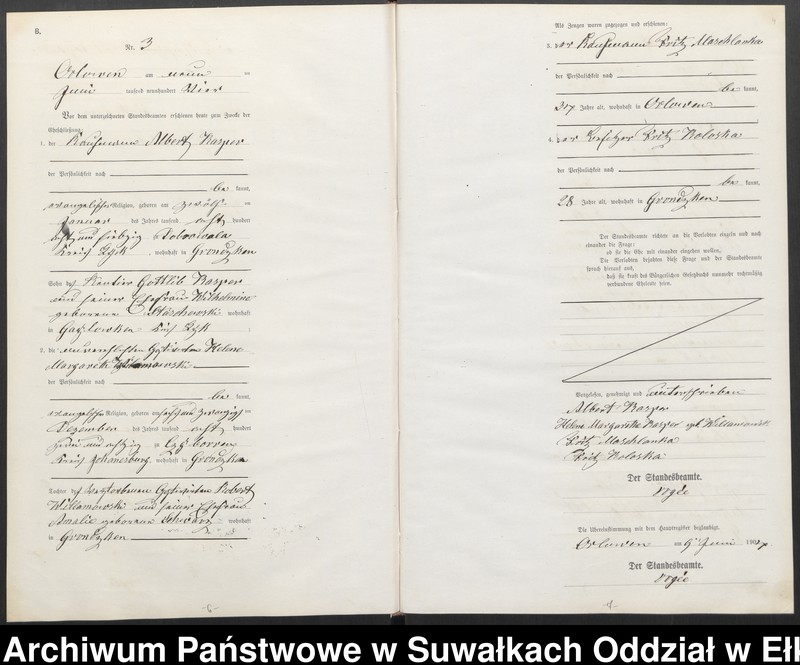 B.
Nr. 3
Orlowen am neun ten
Juni tausend neunhundert vier
Vor dem unterzeichneten Standesbeamten erschienen heute zum Zwecke der
Eheschließung:
1. der Kaufmann Albert Kasper
der Persönlichkeit nach
be kannt,
evangelischer Religion, geboren am zwölf ten
Januar des Jahres tausend acht hundert
acht und siebzig
Kreis Lyck, wohnhaft in Grondzken
Sohn des Rentier Gottlieb Kasper
und seiner Ehefrau Wilhelmine
geborene wohnhaft
in Kreis Lyck
2. die unverehelichte Helene
Margarethe
der Persönlichkeit nach
be kannt,
evangelischer Religion, geboren am sechs und zwanzig ten
Dezember des Jahres tausend acht hundert
und achtzig in
Kreis Johanisburg, wohnhaft in Grondzken
Tochter des verstorbenen Robert
Willamowski und seiner Ehefrau
Amalie geborene Schwarz wohnhaft
in Grondzken
-6-
Als Zeugen waren zugezogen und erschienen:
3. der Kaufmann Fritz Marchlanka
der Persönlichkeit nach
be kannt,
27 Jahre alt, wohnhaft in Orlowen
4. der Besitzer Fritz Koloska
der Persönlichkeit nach
be kannt,
28 Jahre alt, wohnhaft in Grondzken
Der Standesbeamte richtete an die Verlobten einzeln und nach
einander die Frage:
ob sie die Ehe mit einander eingehen wollen.
Die Verlobten bejahten diese Frage und der Standesbeamte
sprach hierauf aus,
daß sie kraft des Bürgerlichen Gesetzbuchs nunmehr rechtmäßig
verbundene Eheleute seien.
Vorgelesen, genehmigt und unterschrieben
Albert Kasper
Helene Margarethe Kasper geb. Willamowski
Fritz Marchlanka
Fritz Koloska
Der Standesbeamte.
Die Übereinstimmung mit dem Hauptregister beglaubigt.
Orlowen am 9ten Juni 1904
Der Standesbeamte.
-4-
Archiwum Państwowe w Suwałkach Oddział w Ełk